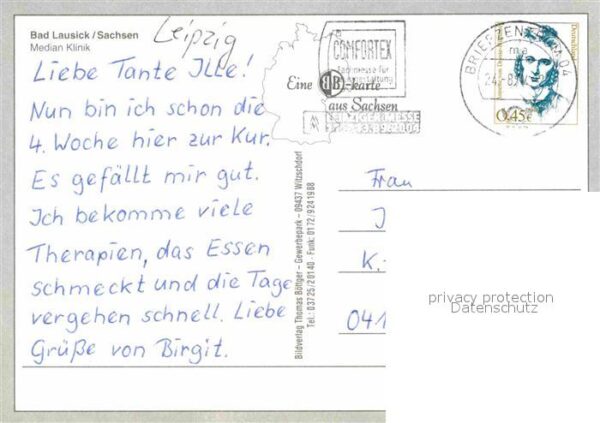 Bad Lausick / Sachsen
Median Klinik
Leipzig
Liebe Tante Ille!
Nun bin ich schon die
4. Woche hier zur Kur.
Es gefällt mir gut.
Ich bekomme viele
Therapien, das Essen
schmeckt und die Tage
vergehen schnell. Liebe
Grüße von Birgit.
COMFORTEX
Fachmesse für
Eine BB-karte
aus Sachsen
LEIPZIGER MESSE
Bildverlag Thomas Böttger – Gewerbepark – 09437 Witzschdorf
Tel.: 03725/20140 - Funk: 0172/9241988
BRIEFZENTRUM 04
ma
Deutschland
0,45€
Frau
I
K.
041
privacy protection
Datenschutz